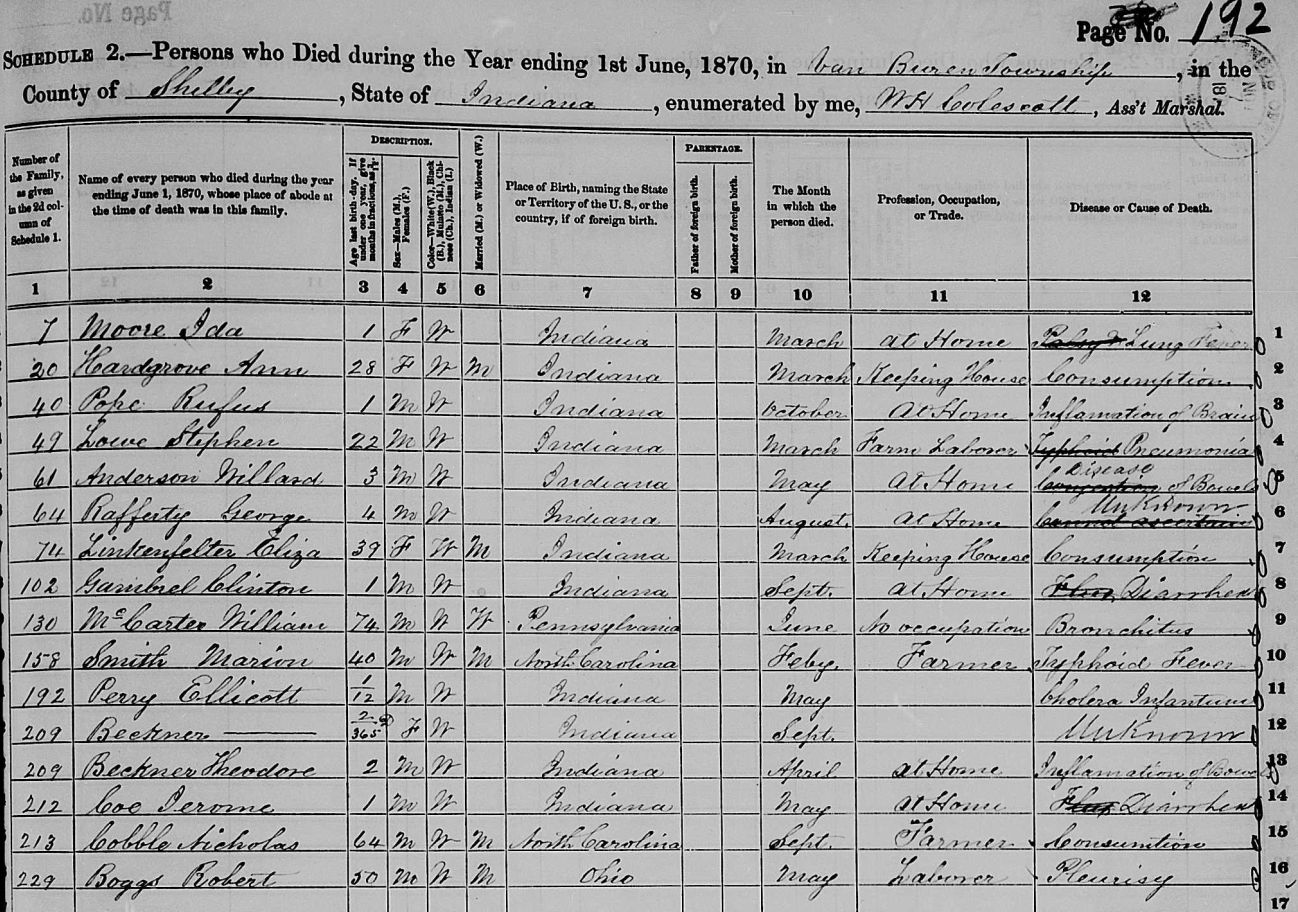 Page No. 192
SCHEDULE 2.—Persons who Died during the Year ending 1st June, 1870, in Van Buren Township, in the
County of Shelby, State of Indiana, enumerated by me, WH Colescott, Ass't Marshal.
Number of the Family, as given in the 2d column of Schedule 1.
Name of every person who died during the year ending June 1, 1870, whose place of abode at the time of death was in this family.
DESCRIPTION.
Age last birth-day. If under one year, give months in fractions, as
Sex—Males (M.), Females (F.)
Color—White (W.), Black (B.), Mulatto (M.), Chinese (Ch.), Indian (I.)
Married (M.) or Widowed (W.)
Place of Birth, naming the State or Territory of the U. S., or the country, if of foreign birth.
PARENTAGE.
Father of foreign birth.
Mother of foreign birth.
The Month in which the person died.
Profession, Occupation, or Trade.
Disease or Cause of Death.
1 2 3 4 5 6 7 8 9 10 11 12
7 Moore Ida 1 F W Indiana March at Home Lung Fever 1
20 Hardgrove Ann 28 F W M Indiana March Keeping House Consumption 2
40 Pope Rufus 1 M W Indiana October At Home Inflamation of Brain 3
49 Lowe Stephen 22 M W Indiana March Farm Laborer Typhoid Pneumonia 4
61 Anderson Willard 3 M W Indiana May At Home Congestion Disease of Bowels 5
64 Rafferty George 4 M W Indiana August. At Home Cannot ascertain Unknown 6
74 Linkenfelter Eliza 39 F W M Indiana March Keeping House Consumption 7
102 Gambrel Clinton 1 M W Indiana Sept. At Home Flux Diarrhea 8
130 McCarter William 74 M W W Pennsylvania June No occupation Bronchitus 9
158 Smith Marion 40 M W M North Carolina Feby. Farmer Typhoid Fever 10
192 Perry Ellicott 1/12 M W Indiana May Cholera Infantum 11
209 Beckner —— 2/365 F W Indiana Sept. Unknown 12
209 Beckner Theodore 2 M W Indiana April at Home Inflamation of Bowels 13
212 Coe Jerome 1 M W Indiana May At Home Flux Diarrhea 14
213 Cobble Nicholas 64 M W M North Carolina Sept. Farmer Consumtion 15
229 Boggs Robert 50 M W M Ohio May Laborer Pleurisy 16
17